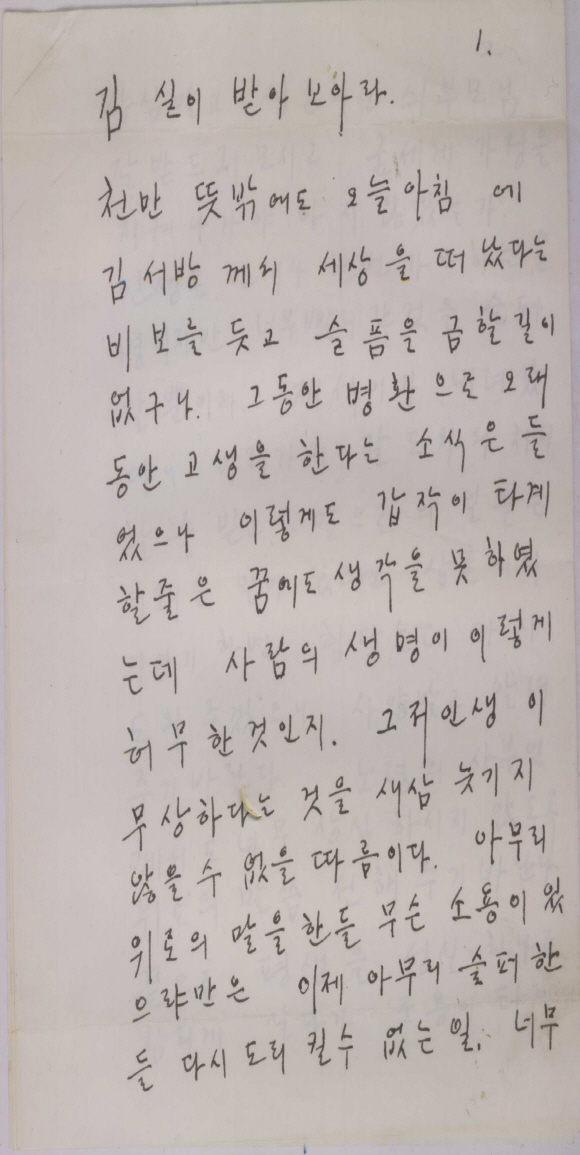 1.
김 실이 받아 보아라.
천만 뜻밖에도 오늘아침 에
김서방 께서 세상을 떠났다는
비보를 듯고 슬픔을 금할길이
없구나. 그동안 병환으로 오래
동안 고생을 한다는 소식은 들
었으나 이렇게도 갑작이 타계
할줄은 꿈에도 생각을 못하였
는데 사람의 생명이 이렇게
허무한것인지. 그저인생이
무상하다는 것을 새삼 늣기지
않을수 없을따름이다. 아무리
위로의 말을한들 무슨 소용이 있
으랴만은 이제 아무리 슬퍼한
들 다시 도리킬수 없는일, 너무